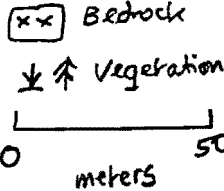 xx Bedrock
Vegetation
0 50
meters